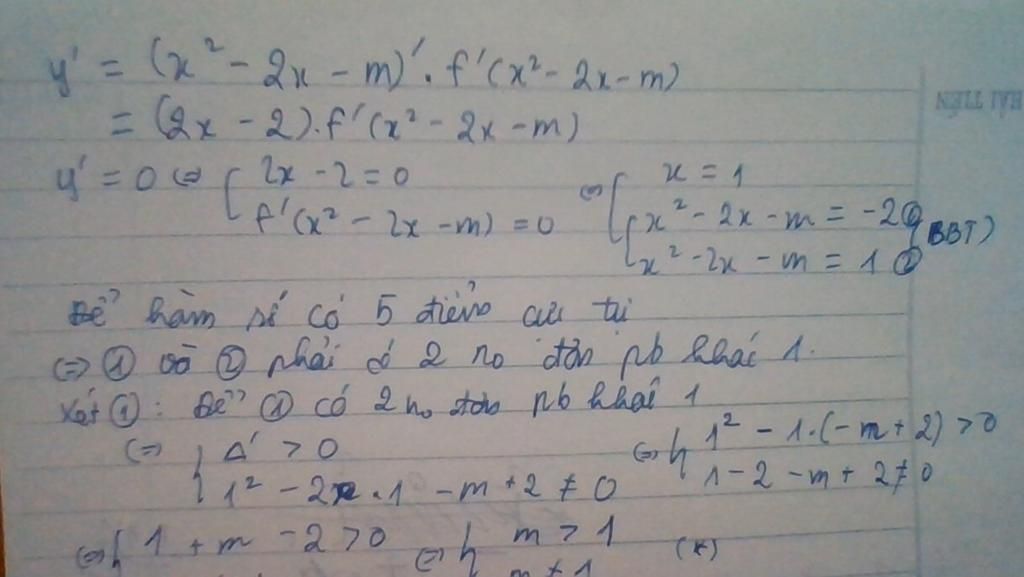 y' = (x² - 2x - m)' . f'(x² - 2x - m)
= (2x - 2) . f'(x² - 2x - m)
HẢI TIẾN
y' = 0 ⇔ [ 2x - 2 = 0 ⇔ [ x = 1
f'(x² - 2x - m) = 0 x² - 2x - m = -2 ① (BBT)
x² - 2x - m = 1 ②
Để hàm số có 5 điểm cực trị
⇔ ① và ② phải có 2 no đơn pb khác 1.
Xét ①: Để ① có 2 no đơn pb khác 1
⇔ { Δ' > 0 ⇔ { 1² - 1.(-m + 2) > 0
1² - 2.1 - m + 2 ≠ 0 1 - 2 - m + 2 ≠ 0
⇔ { 1 + m - 2 > 0 ⇔ { m > 1 (*)
m ≠ 1